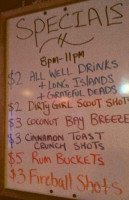 SPECIALS
8pm-11pm
$2 ALL WELL DRINKS
+ LONG ISLANDS
+ GRATEFUL DEADS
$2 DIRTY GIRL SCOUT SHOTS
$3 COCONUT BAY BREEZE
$3 CINNAMON TOAST
CRUNCH SHOTS
$5 RUM BUCKETS
$3 FIREBALL SHOTS